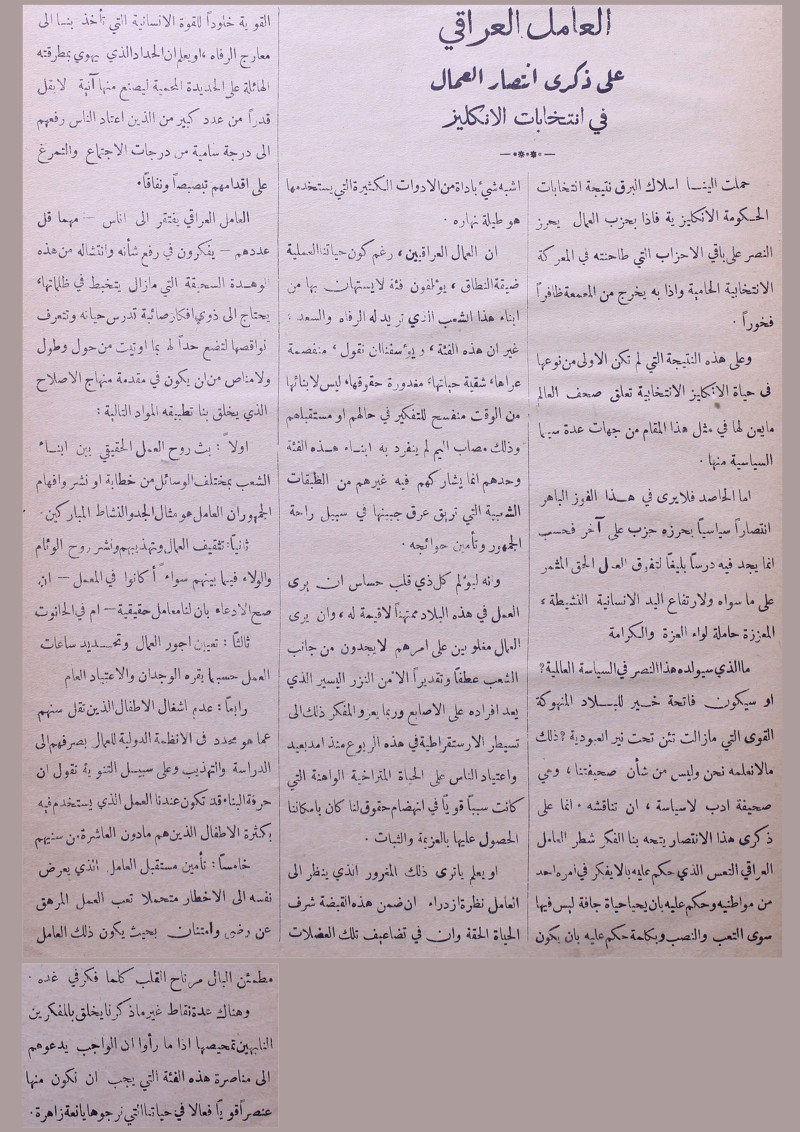 العامل العراقي
على ذكرى انتصار العمال
في انتخابات الانكليز
حملت الينا اسلاك البرق نتيجة انتخابات
الحكومة الانكليزية فاذا بحزب العمال يحرز
النصر على باقي الاحزاب التي طاحنته في المعركة
الانتخابية الحامية واذا به يخرج من المعمعة ظافراً
فخوراً .
وعلى هذه النتيجة التي لم تكن الاولى من نوعها
في حياة الانكليز الانتخابية تعلق صحف العالم
مايعن لها في مثل هذا المقام من جهات عدة سيما
السياسية منها .
اما الحاصد فلا يرى في هـذا الفوز الباهر
انتصاراً سياسياً يحرزه حزب على آخر فحسب
انما يجد فيه درساً بليغاً لتفوق العمل الحق المثمر
على ما سواه ولارتفاع اليد الانسانية النشيطة ،
المعززة حاملة لواء العزة والكرامة
ماالذي سيولده هذا النصر في السياسة العالمية؟
او سيكون فاتحة خـير للبـلاد المنهوكة
القوى التي مازالت تئن تحت نير العبودية ؟ ذلك
مالانعلمه نحن وليس من شأن صحيفتنا ، وهي
صحيفة ادب لاسياسة ، ان تناقشه . انما على
ذكرى هذا الانتصار يتجه بنا الفكر شطر العامل
العراقي التعس الذي حكم عليه بالا يفكر في امره احد
من مواطنيه وحكم عليه بان يحيا حياة جافة ليس فيها
سوى التعب والنصب وبكلمة حكم عليه بان يكون
اشبه شيء باداة من الادوات الكثيرة التي يستخدمها
هو طيلة نهاره .
ان العمال العراقيين ، رغم كون حياتنا العملية
ضيقة النطاق ، يؤلفون فئة لايستهان بها من
ابناء هذا الشعب الذي نريد له الرفاه والسعد ،
غير ان هذه الفئة ، ويؤسفنا ان نقول ، منفصمة
عراها ، شقية حياتها ، مغدورة حقوقها ، ليس لابنائها
من الوقت منفسح للتفكير في حالهم او مستقبلهم
وذلك مصاب اليم لم ينفرد به ابنـاء هـذه الفئة
وحدهم انما يشاركهم فيه غيرهم من الطبقات
الشعبية التي تريق عرق جبينها في سبيل راحة
الجمهور وتأمين حوائجه .
وانه ليؤلم كل ذي قلب حساس ان يرى
العمل في هذه البلاد ممتهناً لاقيمة له ، وان يرى
العمال مغلوبين على امرهم لايجدون من جانب
الشعب عطفاً وتقديراً الا من النزر اليسير الذي
يعد افراده على الاصابع وربما يعزو المفكر ذلك الى
تسيطر الارستقراطية في هذه الربوع منذ امد بعيد
واعتياد الناس على الحياة المتراخية الواهنة التي
كانت سبباً قوياً في انهضام حقوق لنا كان بامكاننا
الحصول عليها بالعزيمة والثبات .
او يعلم ياترى ذلك المغرور الذي ينظر الى
العامل نظرة ازدراء ان ضمن هذه القبضة شرف
الحياة الحقة وان في تضاعيف تلك العضلات
القوية خلوداً للقوة الانسانية التي تأخذ بنا الى
معارج الرفاه ، او يعلم ان الحداد الذي يهوي بمطرقته
الهائلة على الحديدة المحمية ليصنع منها آنية لايقل
قدراً من عدد كبير من الذين اعتاد الناس رفعهم
الى درجة سامية من درجات الاجتماع والتمرغ
على اقدامهم تبصبصاً ونفاقاً .
العامل العراقي يفتقر الى اناس — مهما قل
عددهم — يفكرون في رفع شأنه وانتشاله من هذه
الوهـدة السحيقة التي مازال يتخبط في ظلماتها ،
يحتاج الى ذوي افكار صائبة تدرس حياته وتتعرف
نواقصها لتضع حداً لها بما اوتيت من حول وطول
ولامناص من ان يكون في مقدمة منهاج الاصلاح
الذي يخلق بنا تطبيقه المواد التالية :
اولاً : بث روح العمل الحقيقي بين ابنـاء
الشعب بمختلف الوسائل من خطابة او نشر وافهام
الجمهور ان العامل هو مثال الجد والنشاط المباركين .
ثانياً : تثقيف العمال وتهذيبهم ونشر روح الوئام
والولاء فيما بينهم سواءً أكانوا في المعمل — ان
صح الادعاء بان لنا معامل حقيقية — ام في الحانوت
ثالثاً : تعيين اجور العمال وتحـديد ساعات
العمل حسبما يقره الوجدان والاعتياد العام
رابعاً : عدم اشغال الاطفال الذين تقل سنهم
عما هو محدد في الانظمة الدولية للعمال بصرفهم الى
الدراسة والتهذيب وعلى سبيـل التنويه نقول ان
حرفة البناء قد تكون عندنا العمل الذي يستخدم فيه
بكثرة الاطفال الذين هم مادون العاشرة من سنيهم
خامساً : تأمين مستقبل العامل الذي يعرض
نفسه الى الاخطار متحملا تعب العمل المرهق
عن رضى وامتنان بحيث يكون ذلك العامل
مطمئن البال مرتاح القلب كلما فكر في غده .
وهناك عدة نقاط غير ماذكرنا يخلق بالمفكرين
النابهين تمحيصها اذا ما رأوا ان الواجب يدعوهم
الى مناصرة هذه الفئة التي يجب ان نكون منها
عنصراً قوياً فعالا في حياتنا التي نرجوها يانعة زاهرة .